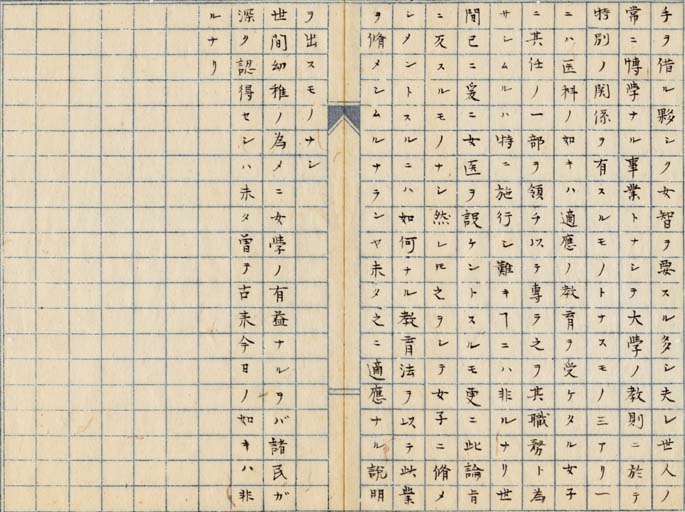 手ヲ借ル夥シク女智ヲ要スル多シ夫レ世人ノ
常ニ慱学ナル事業トナシテ大學ノ教則ニ於テ
特別ノ関係ヲ有スルモノトナスモノ三アリ一
ニハ医科ノ如キハ適應ノ教育ヲ受ケタル女子
ニ其任ノ一部ヲ領チ以テ專ラ之ヲ其職務ト為
サシムルハ特ニ施行シ難キヿニハ非ルナリ世
間已ニ爰ニ女医ヲ設ケントスルモ更ニ此論旨
ニ反スルモノナシ然レ𪜈之ヲシテ女子ニ脩メ
シメントスルニハ如何ナル教育法ヲ以テ此業
ヲ脩メシムルナランヤ未タ之ニ適應ナル説明
ヲ出スモノナシ
世間幼稚ノ為メニ女學ノ有益ナルヲバ諸民ガ
深ク認得セシハ未タ曽テ古来今日ノ如キハ非
ルナリ